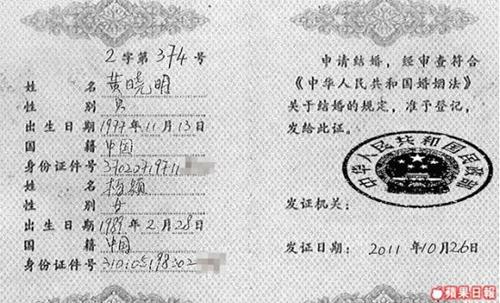 2字第374号
姓名 黄晓明
性别 男
出生日期 1977年11月13日
国籍 中国
身份证件号 37020719711
姓名 杨颖
性别 女
出生日期 1989年2月28日
国籍 中国
身份证件号 310105198302
申请结婚，经审查符合
《中华人民共和国婚姻法》
关于结婚的规定，准予登记，
发给此证。
中华人民共和国民政部
发证机关：
发证日期：2011年10月26日
蘋果日報